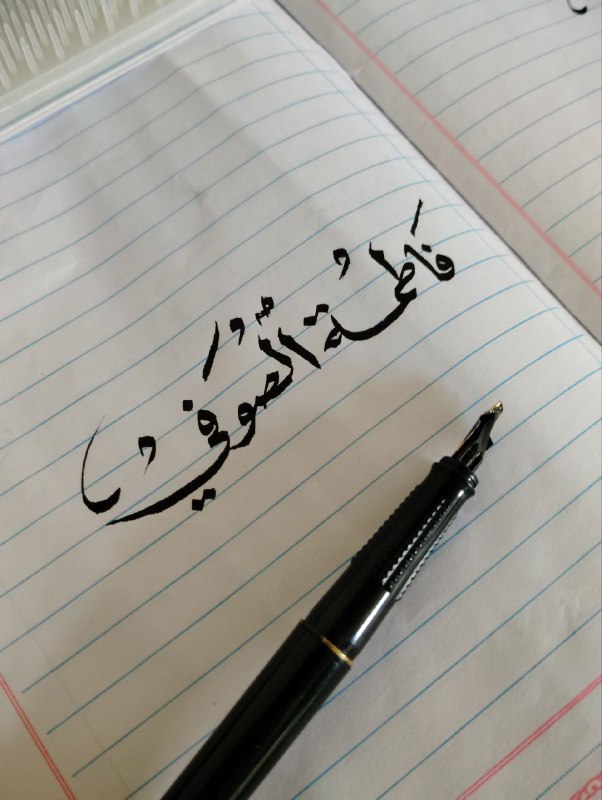 فاطمة الصوفي